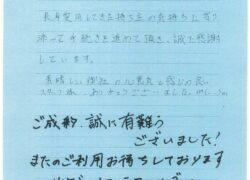 長年愛用してきた持ち主の気持ちに寄り
添って手続きを進めて頂き、誠に感謝
しています。
素晴しい御社の
スタッフ ありがとうございました。
ご成約、誠に有難う
ございました！
またのご利用お待ちしております